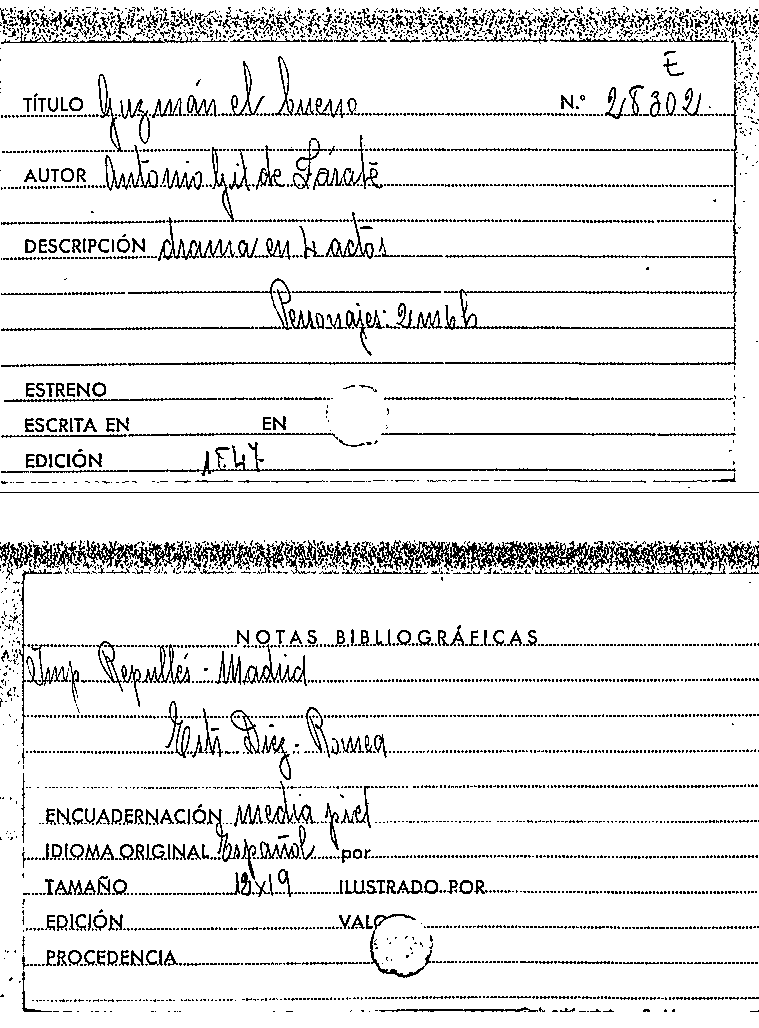 E
TÍTULO Guzmán el bueno N.º 28302
AUTOR Antonio Gil de Zárate
DESCRIPCIÓN drama en 4 actos
Personajes: 2m 6h
ESTRENO
ESCRITA EN EN
EDICIÓN 1847
NOTAS BIBLIOGRÁFICAS
Imp. Repullés - Madrid
Estr. Diez - Romea
ENCUADERNACIÓN media piel
IDIOMA ORIGINAL Español por
TAMAÑO 12x19 ILUSTRADO POR
EDICIÓN VALO
PROCEDENCIA